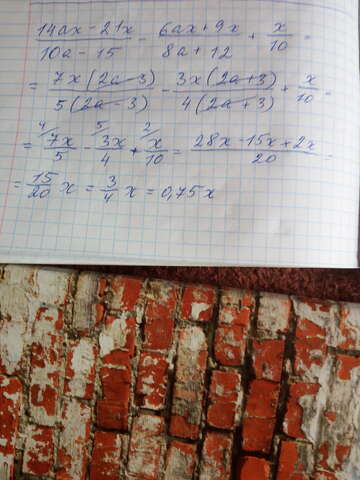 (14ax - 21x)/(10a - 15) - (6ax + 9x)/(8a + 12) + x/10 =
= 7x(2a - 3)/5(2a - 3) - 3x(2a + 3)/4(2a + 3) + x/10 =
= ⁴⁄7x/5 - ⁵⁄3x/4 + ²⁄x/10 = (28x - 15x + 2x)/20 =
= 15/20 x = 3/4 x = 0,75x